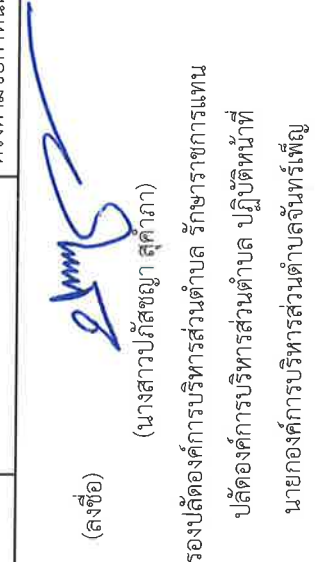 (ลงชื่อ)
(นางสาวปภัสชญา สุคำภา)
รองปลัดองค์การบริหารส่วนตำบล รักษาราชการแทน
ปลัดองค์การบริหารส่วนตำบล ปฏิบัติหน้าที่
นายกองค์การบริหารส่วนตำบลจันทร์เพ็ญ